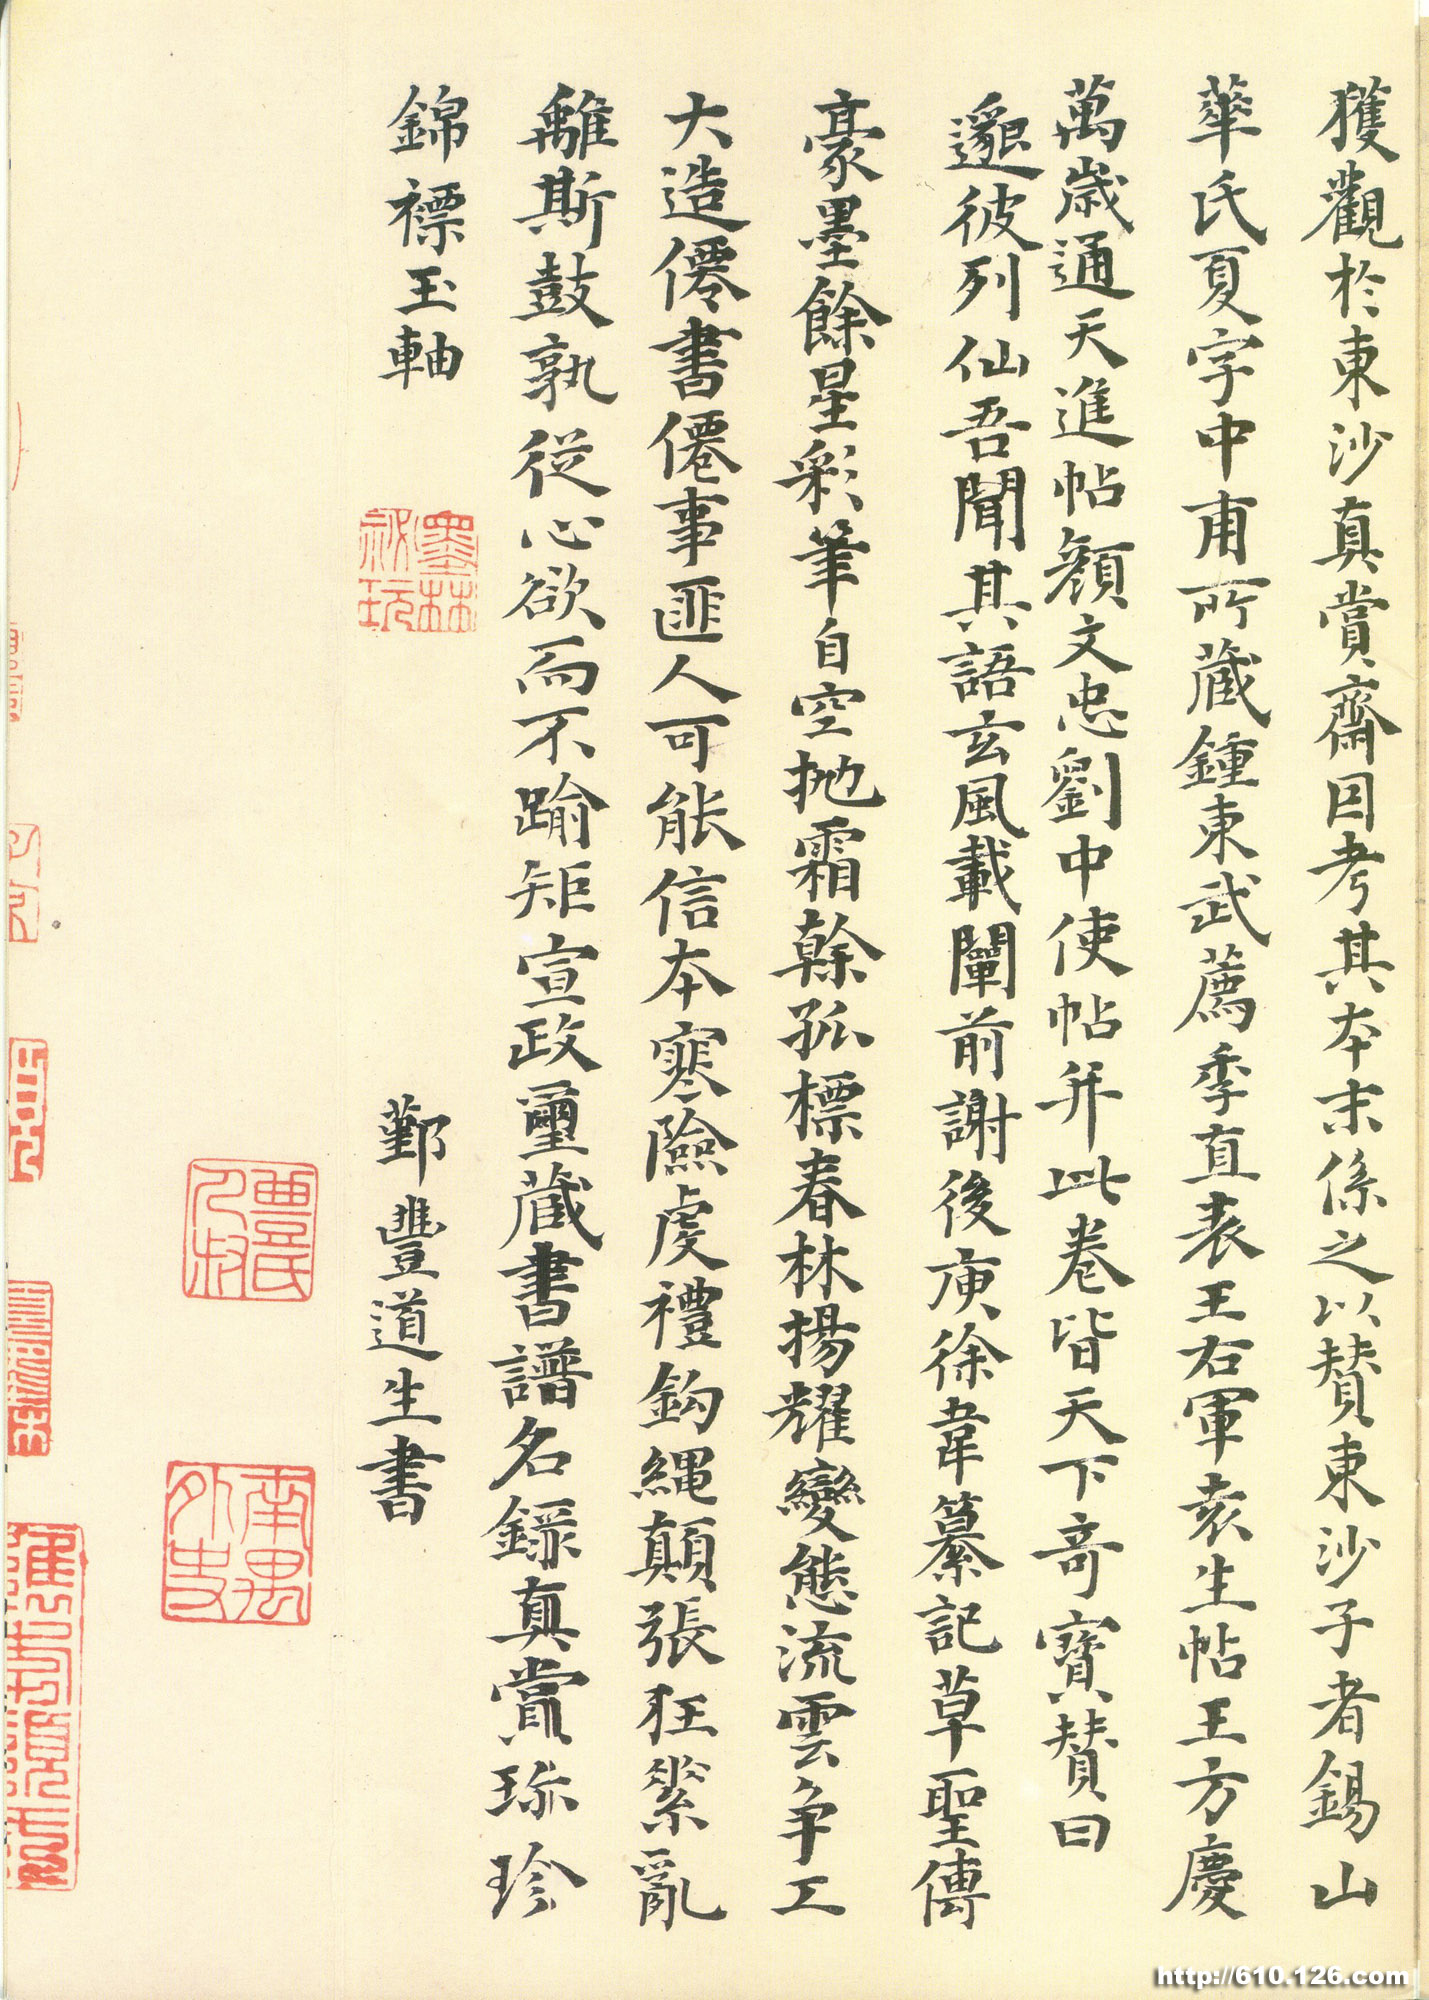 獲觀於東沙真賞齋因考其本末係之以賛東沙子者錫山
華氏夏字中甫所蔵鍾東武薦季直表王右軍袁生帖王方慶
萬歳通天進帖顏文忠劉中使帖并此卷皆天下奇寶賛曰
邈彼列仙吾聞其語玄風載闡前謝後庾徐韋纂記草聖傳
豪墨餘星彩筆自空拋霜榦孤標春林揚耀變態流雲争工
大造僊書僊事匪人可能信本寒險虔禮鈎繩顛張狂縈亂
離斯鼓孰從心欲而不踰矩宣政璽蔵書譜名録真賞珎珍
錦褾玉軸
鄞豐道生書
墨林祕玩
豐氏人叔
南禺外史
http://610.126.com